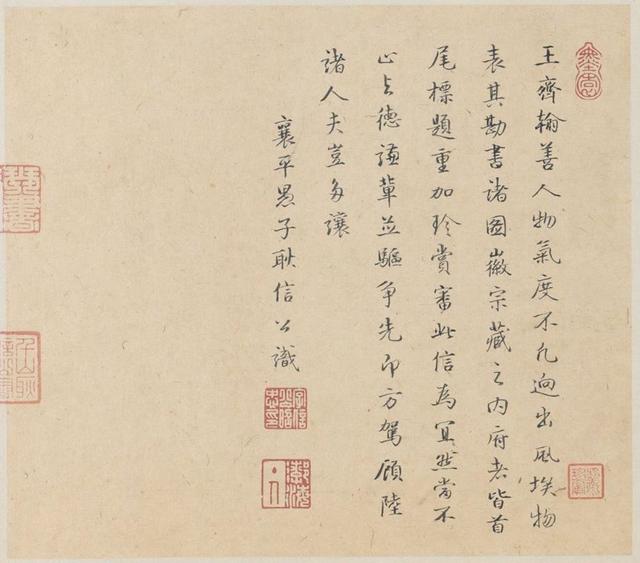 王齊翰善人物氣度不凡逈出風埃物
表其勘書諸圖嶶宗藏之内府者皆首
尾標題重加珍賞審此信為冥然當不
止与德謙軰並驅争先即方駕顧陸
諸人夫豈多讓
襄平愚子耿信公識